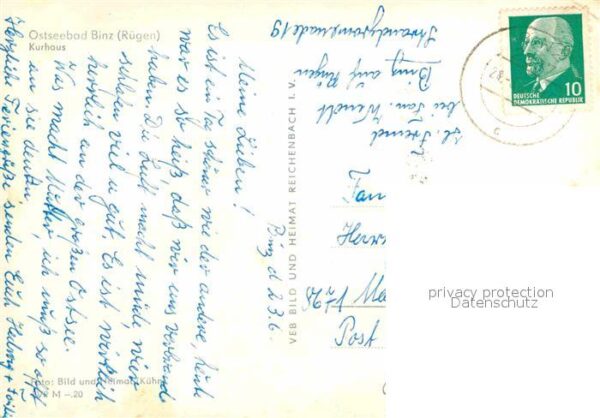 Ostseebad Binz (Rügen)
Kurhaus
Binz d 23.6.
Meine Lieben!
Es ist ein Tag schöner wie der andere, heute
war es so heiß daß wir uns verbrannt
haben. Die Luft macht müde, wir
schlafen viel u gut. Es ist wirklich
herrlich an der großen Ostsee.
Was macht Mutter, ich muß so oft
an sie denken.
Herzliche Feriengrüße senden Euch Helmg +
Foto: Bild und Heimat (Kühn)
M -.20
VEB BILD UND HEIMAT REICHENBACH I. V.
bei Fam.
Binz auf Rügen
Strandpromenade 19
DEUTSCHE
DEMOKRATISCHE REPUBLIK
10
Post
privacy protection
Datenschutz